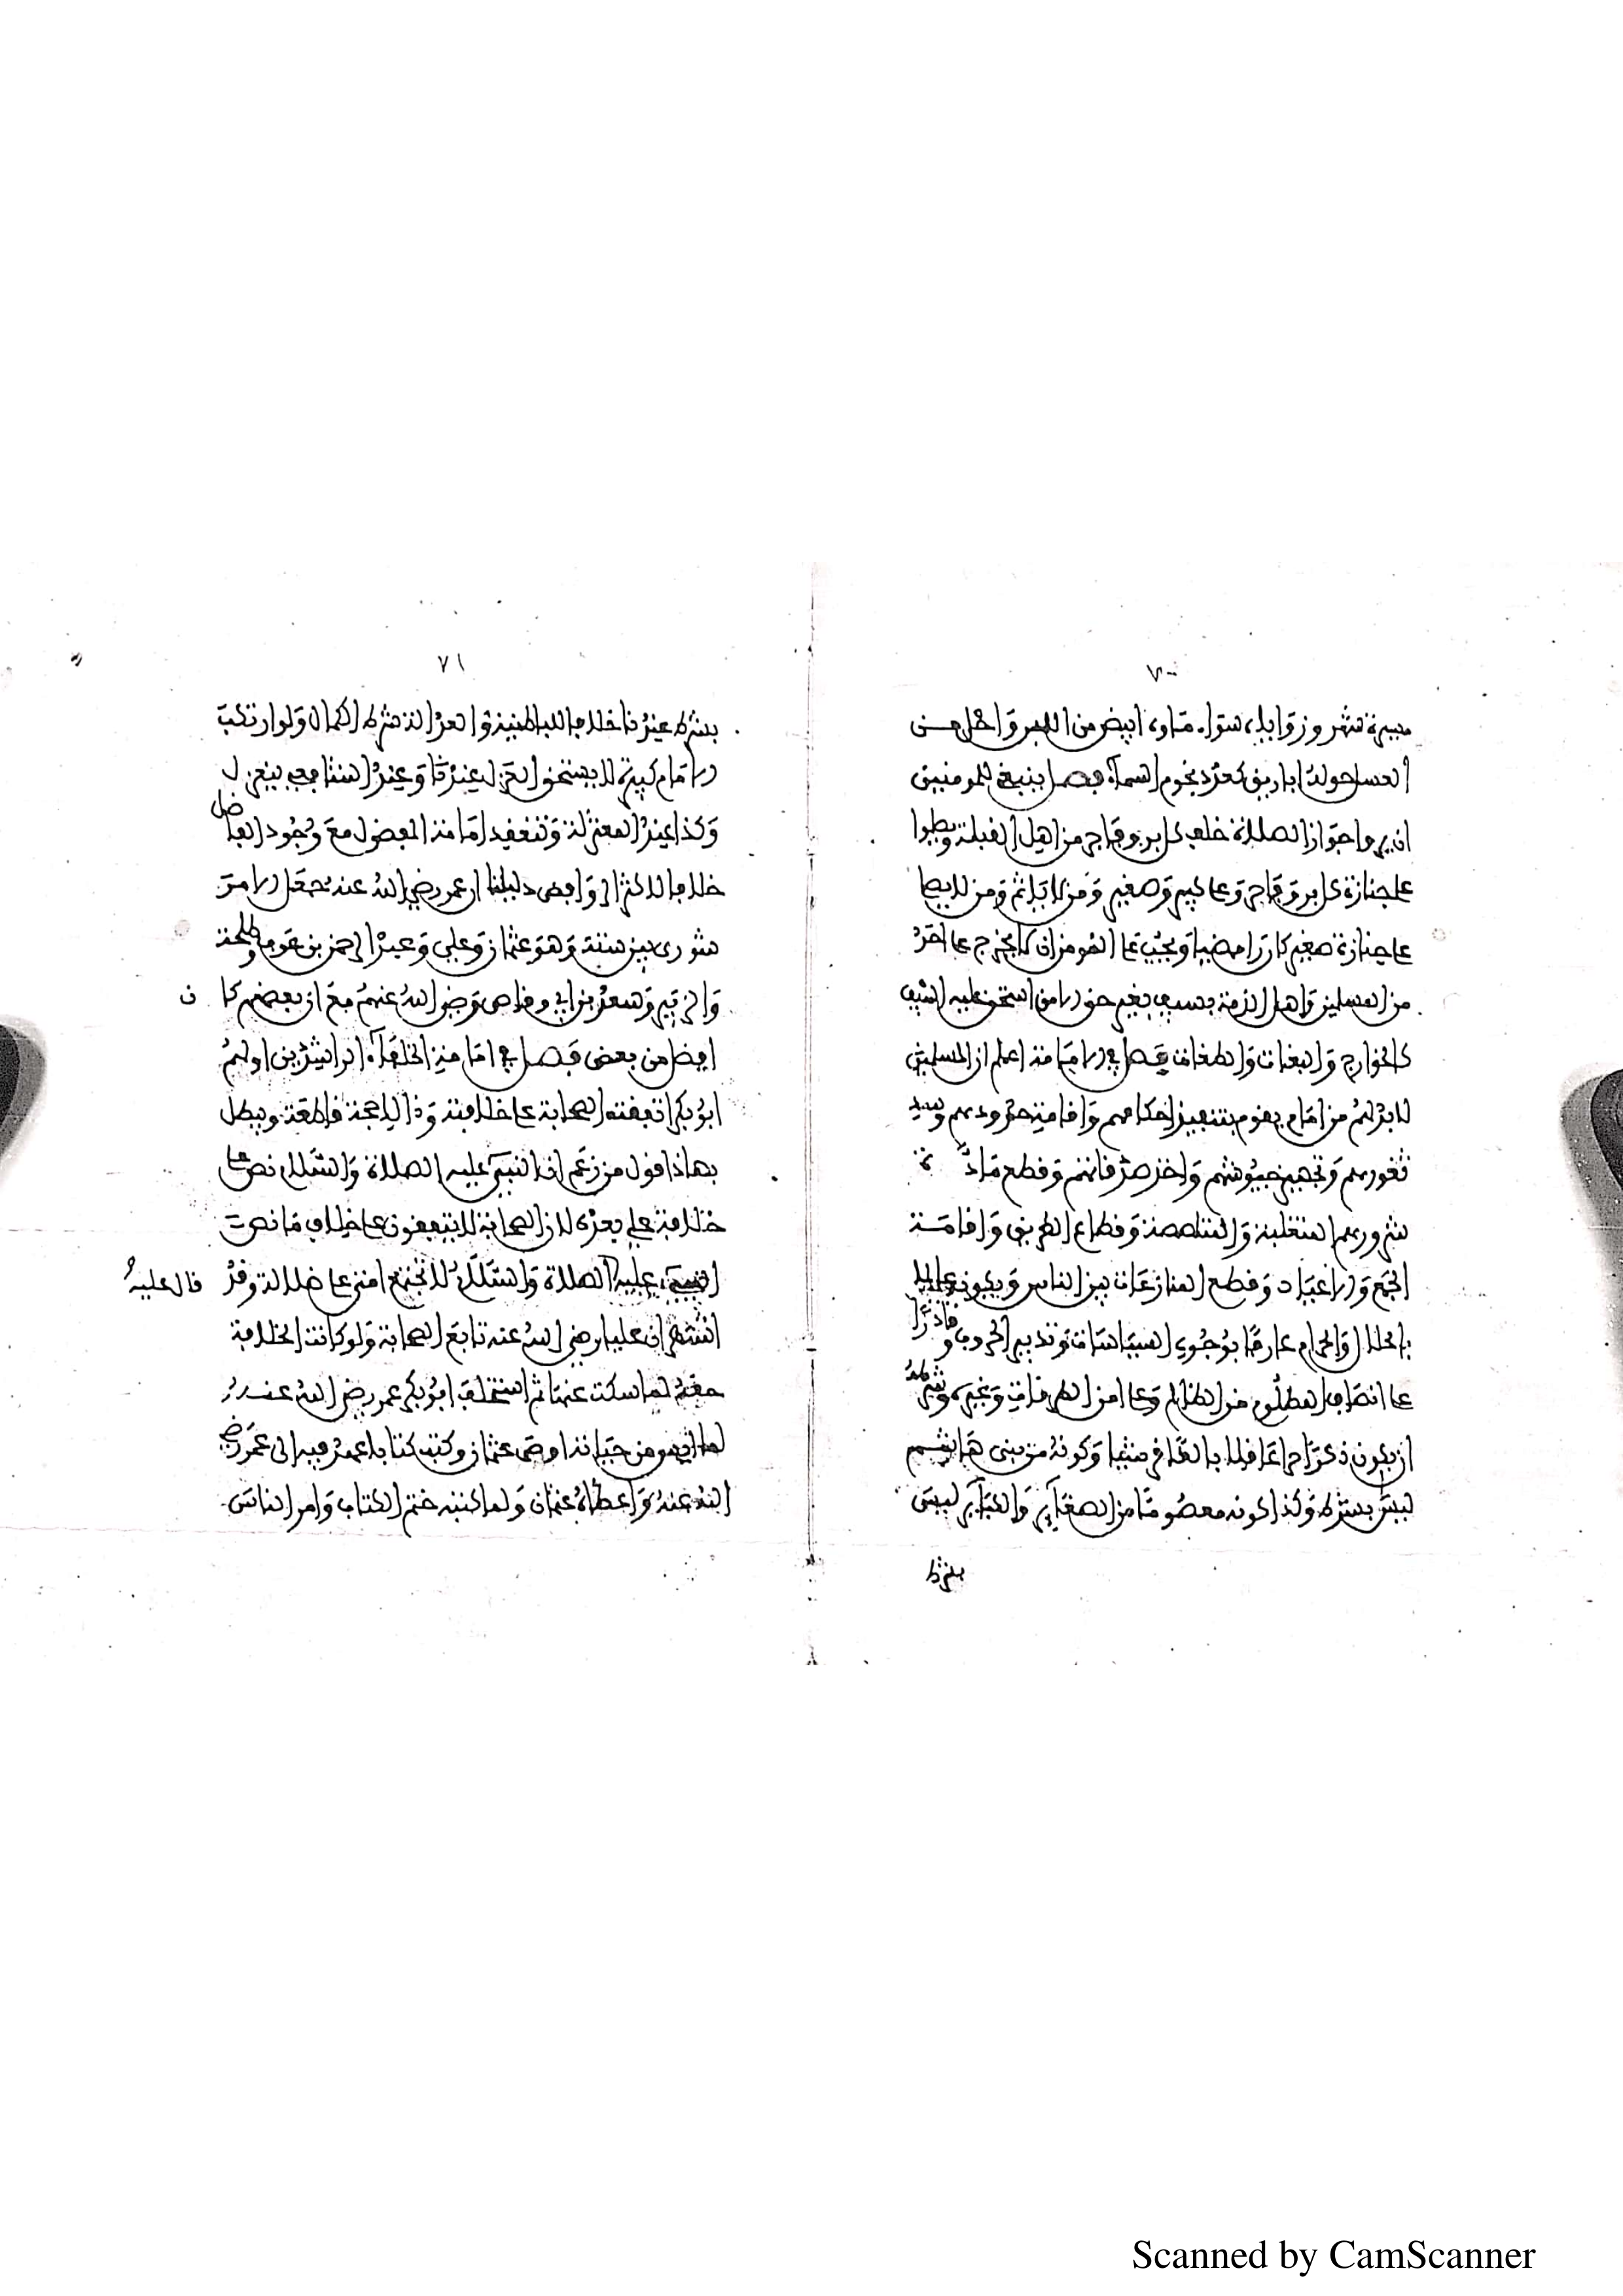 ٧٠
مسيرة شهر وزواياه سواء ماؤه ابيض من اللبن واحلى من
العسل حوله اباريق كعدد نجوم السماء فصل ينبغي للمومنين
ان يروا جواز الصلاة خلف كل بر وفاجر من اهل القبلة ويصلوا
على جنازة كل بر وفاجر وعلى كبير وصغير ومن لا يصل
على جنازة صغير كان رافضيا ويجب على المومن ان لا يخرج على احد
من المسلمين واهل الذمة بسيف بغير حق الا من استحق عليه السيف
كالخوارج والبغات والطغات فصل في الامامة اعلم ان المسلمين
لا بد لهم من امام يقوم بتنفيذ احكامهم واقامة حدودهم وسد
ثغورهم وتجهيز جيوشهم واخذ صدقاتهم وقطع مادة
شرورهم المتغلبة والمتلصصة وقطاع الطريق واقامة
الجمع والاعياد وقطع المنازعات بين الناس ويكون عالما
بالحلال والحرام عارفا بوجوه السياسات وتدبير الحروب وقادرا
على انصاف المظلوم من الظالم وعلى امن الطرقات وغيره وشرطه
ان يكون ذكرا حرا عاقلا بالغا قرشيا وكونه من بني هاشم
ليس بشرط وكذا كونه معصوما من الصغاير والكباير ليس
بشرط
٧١
بشرط عندنا خلافا للباطنية والعدالة شرط الكمال ولو ارتكب
الامام كبيرة لا يستحق العزل عندنا وعند الشافعي ينعزل
وكذا عند المعتزلة وتنعقد امامة المفضول مع وجود الفاضل
خلافا لاكثر الروافض دليلنا ان عمر رضي الله عنه جعل الامر
شورى بين ستة وهو عثمان وعلي وعبد الرحمن بن عوف وطلحة
والزبير وسعد بن ابي وقاص رضي الله عنهم مع ان بعضهم كا
ن
افضل من بعض فصل في امامة الخلفاء الراشدين اولهم
ابو بكر اتفقت الصحابة على خلافته وذالك حجة قاطعة ويبطل
بهاذا قول من زعم ان النبي عليه الصلاة والسلام نص على
خلافة علي بعده لان الصحابة لا يتفقون على خلاف ما نص
النبي عليه الصلاة والسلام لا تجتمع امتي على ضلالة وقد
قال عليه
اشتهر ان عليا رضي الله عنه تابع الصحابة ولو كانت الخلافة
حقه لما سكت عنها ثم استخلف ابو بكر عمر رضي الله عنه
لما ايس من حياته اوصى عثمان وكتب كتابا عهد فيه الى عمر رضي
الله عنه واعطاه عثمان ولما كتبه ختم الكتاب وامر الناس
Scanned by CamScanner